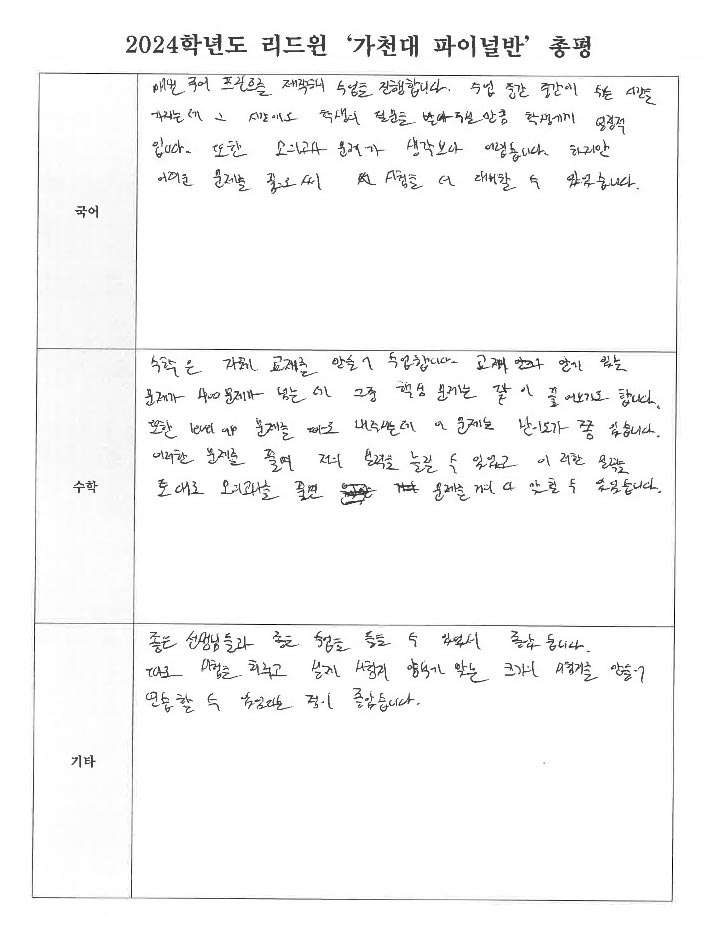 2024학년도 리드윈 '가천대 파이널반' 총평
국어
매번 국어 프린트를 제작하여 수업을 진행합니다. 수업 중간 중간에 쉬는 시간을
가지는데 그 시간에도 학생의 질문을 받아주실 만큼 학생에게 열정적
입니다. 또한 모의고사 문제가 생각보다 어렵습니다. 하지만
어려운 문제를 풂으로써 시험을 더 대비할 수 있었습니다.
수학
수학은 자체 교재를 만들어 수업합니다. 교재 안에 있는
문제가 400문제가 넘는데 그중 핵심 문제는 같이 풀어보기도 합니다.
또한 level up 문제를 따로 내주시는데 이 문제는 난이도가 좀 있습니다.
이러한 문제를 풀며 저의 실력을 늘릴 수 있었고 이러한 실력을
토대로 모의고사를 풀면 문제를 거의 다 맞힐 수 있었습니다.
기타
좋은 선생님들과 좋은 수업을 들을 수 있어서 좋았습니다.
따로 시험을 치루고 실제 시험지 양식에 맞는 크기의 시험지를 만들어
연습할 수 있었다는 점이 좋았습니다.